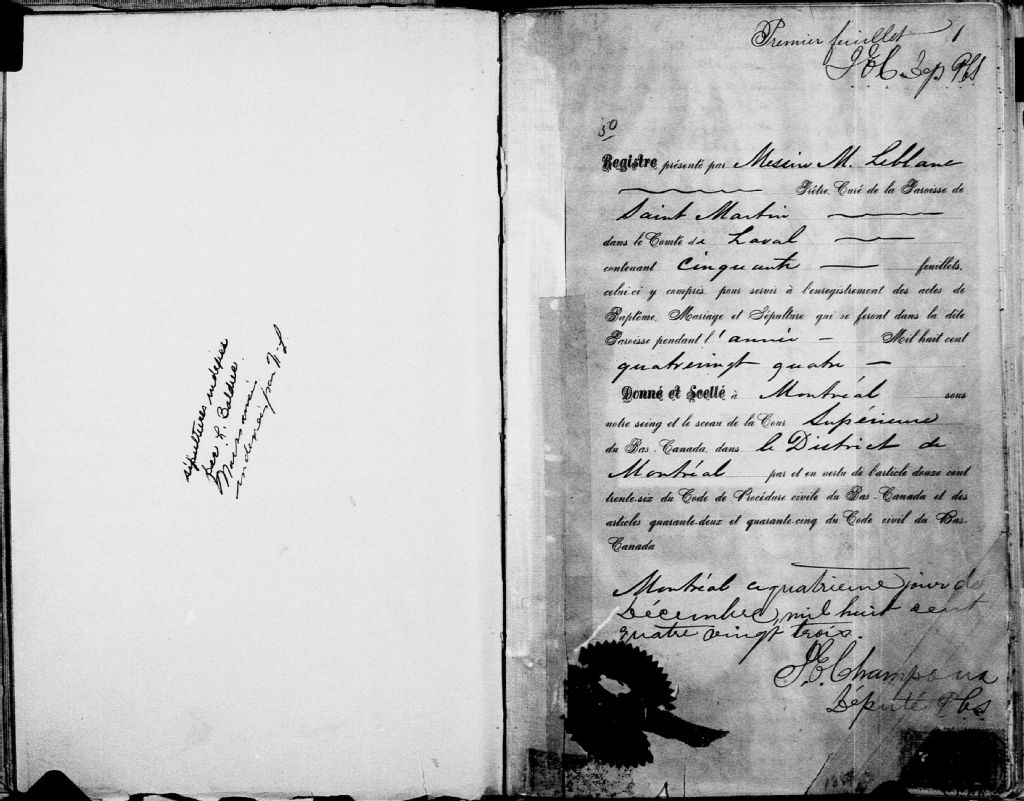 sépultures indexées
par L. Baldric
Naiss. ainsi
indexées par N L
Premier feuillet 1
J.E.C. Dep P.C.S
50
Registre présenté par Messire M. Leblanc
Prêtre, Curé de la Paroisse de
Saint Martin
dans le Comté de Laval
contenant cinquante feuillets,
celui-ci y compris, pour servir à l'enregistrement des actes de
Baptême, Mariage et Sépulture qui se feront dans la dite
Paroisse pendant l'année Mil huit cent
quatrevingt quatre
Donné et Scellé à Montréal sous
notre seing et le sceau de la Cour Supérieure
du Bas-Canada, dans le District de
Montréal par et en vertu de l'article douze cent
trente-six du Code de Procédure civile du Bas-Canada et des
articles quarante-deux et quarante-cinq du Code civil du Bas-
Canada
Montréal ce quatrieme jour de
Décembre, mil huit cent
quatre vingt trois.
J.E. Champoux
Député P.C.S.